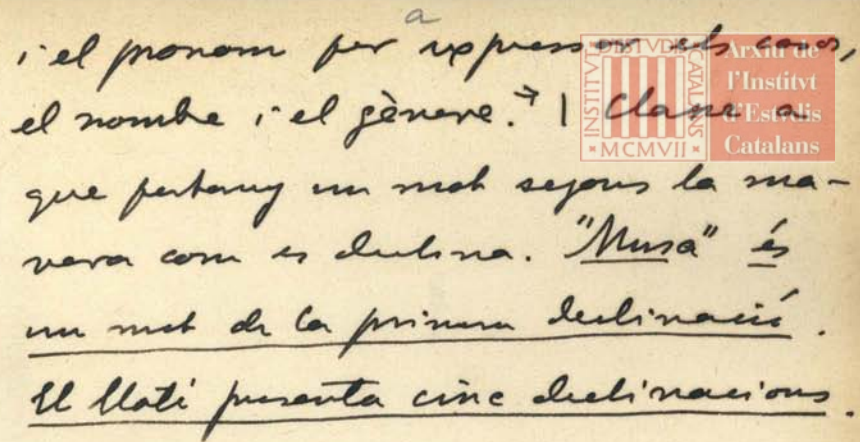 a
i el pronom per expressar els casos,
el nombre i el gènere. | Classe a
que pertany un mot segons la ma-
nera com es declina. "Musa" és
un mot de la primera declinació.
El llatí presenta cinc declinacions.
INSTITVT D'ESTVDIS CATALANS
MCMVII
Arxiu de
l'Institvt
d'Estvdis
Catalans